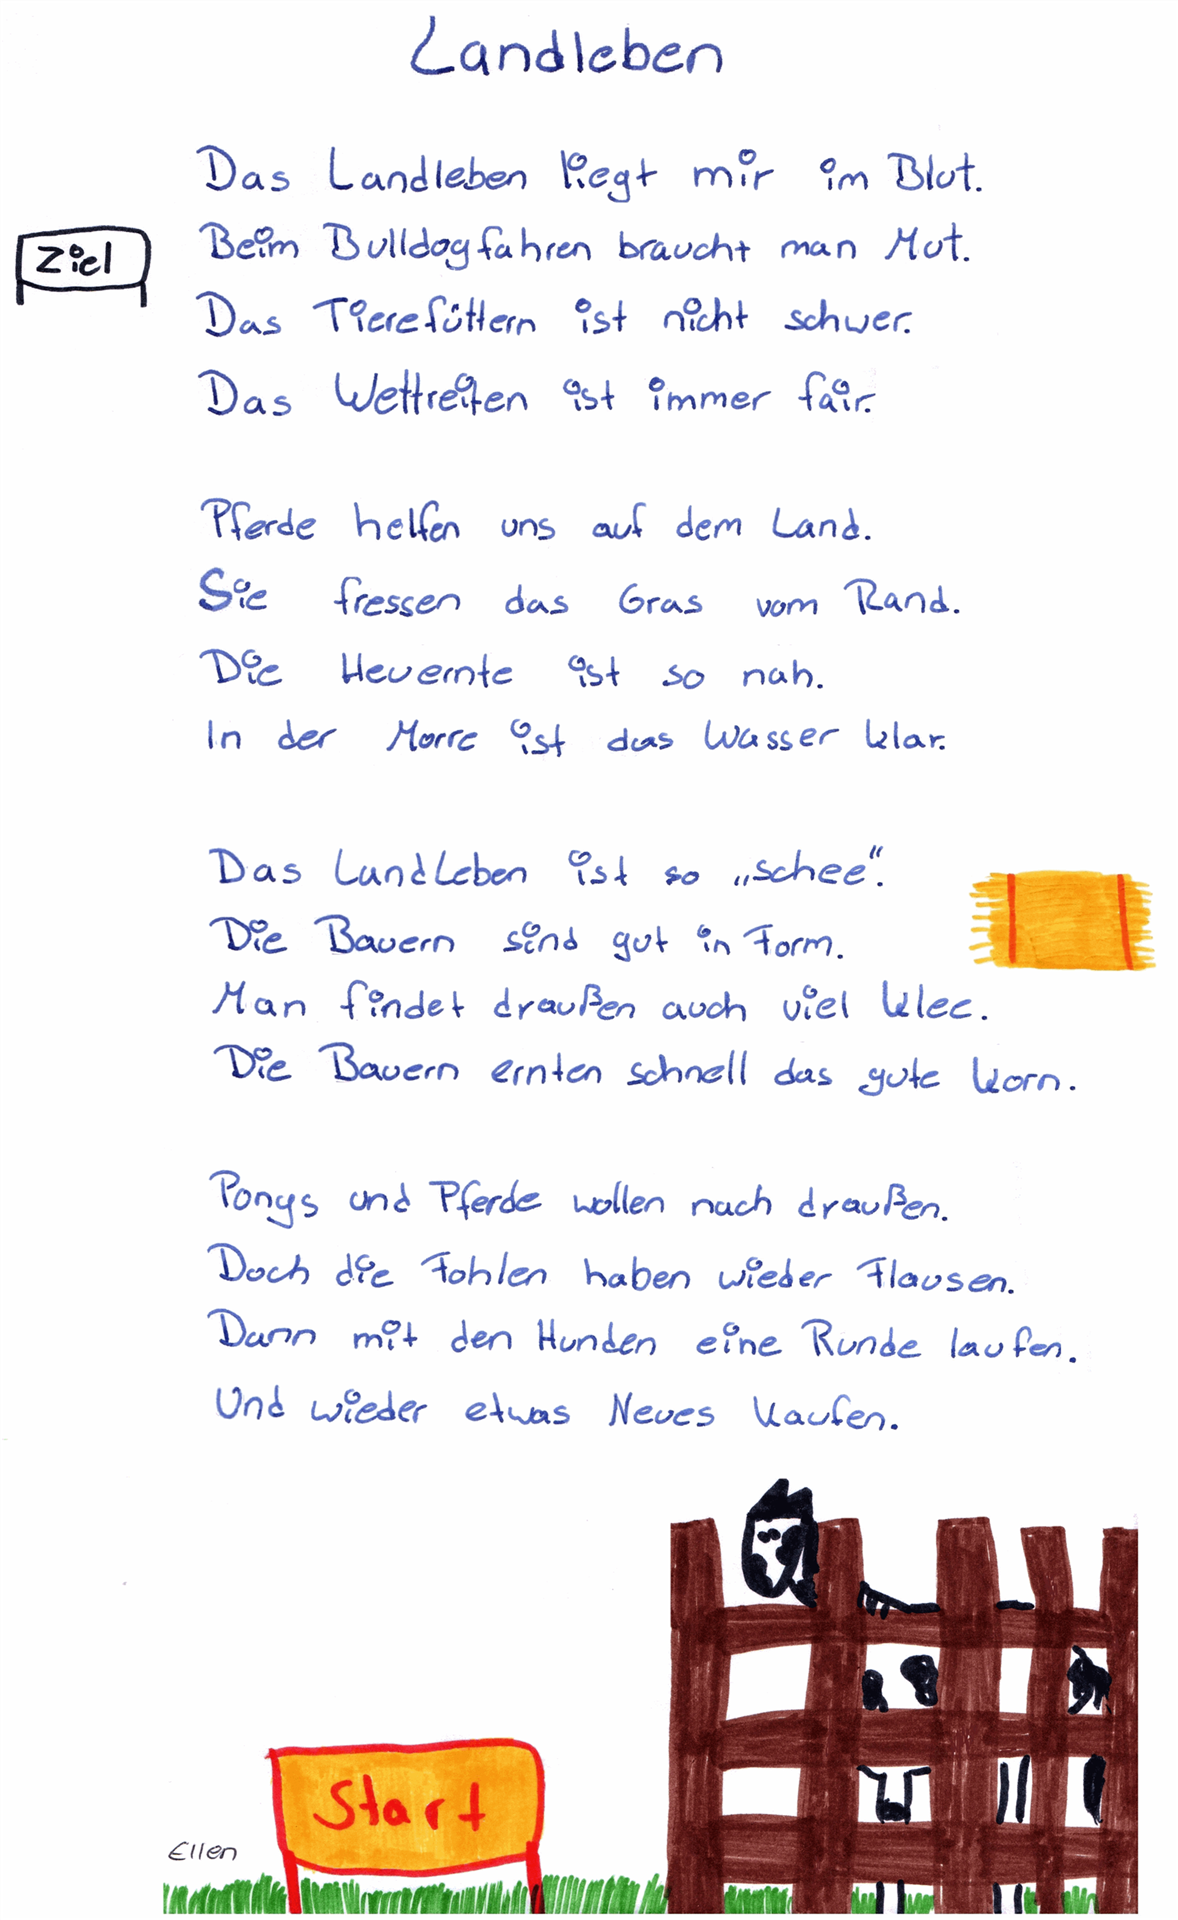 Landleben
Das Landleben liegt mir im Blut.
Beim Bulldogfahren braucht man Mut.
Ziel
Das Tierefüttern ist nicht schwer.
Das Wettreiten ist immer fair.
Pferde helfen uns auf dem Land.
Sie fressen das Gras vom Rand.
Die Heuernte ist so nah.
In der Morre ist das Wasser klar.
Das Landleben ist so „schee“.
Die Bauern sind gut in Form.
Man findet draußen auch viel Klee.
Die Bauern ernten schnell das gute Korn.
Ponys und Pferde wollen nach draußen.
Doch die Fohlen haben wieder Flausen.
Dann mit den Hunden eine Runde laufen.
Und wieder etwas Neues kaufen.
Start
Ellen